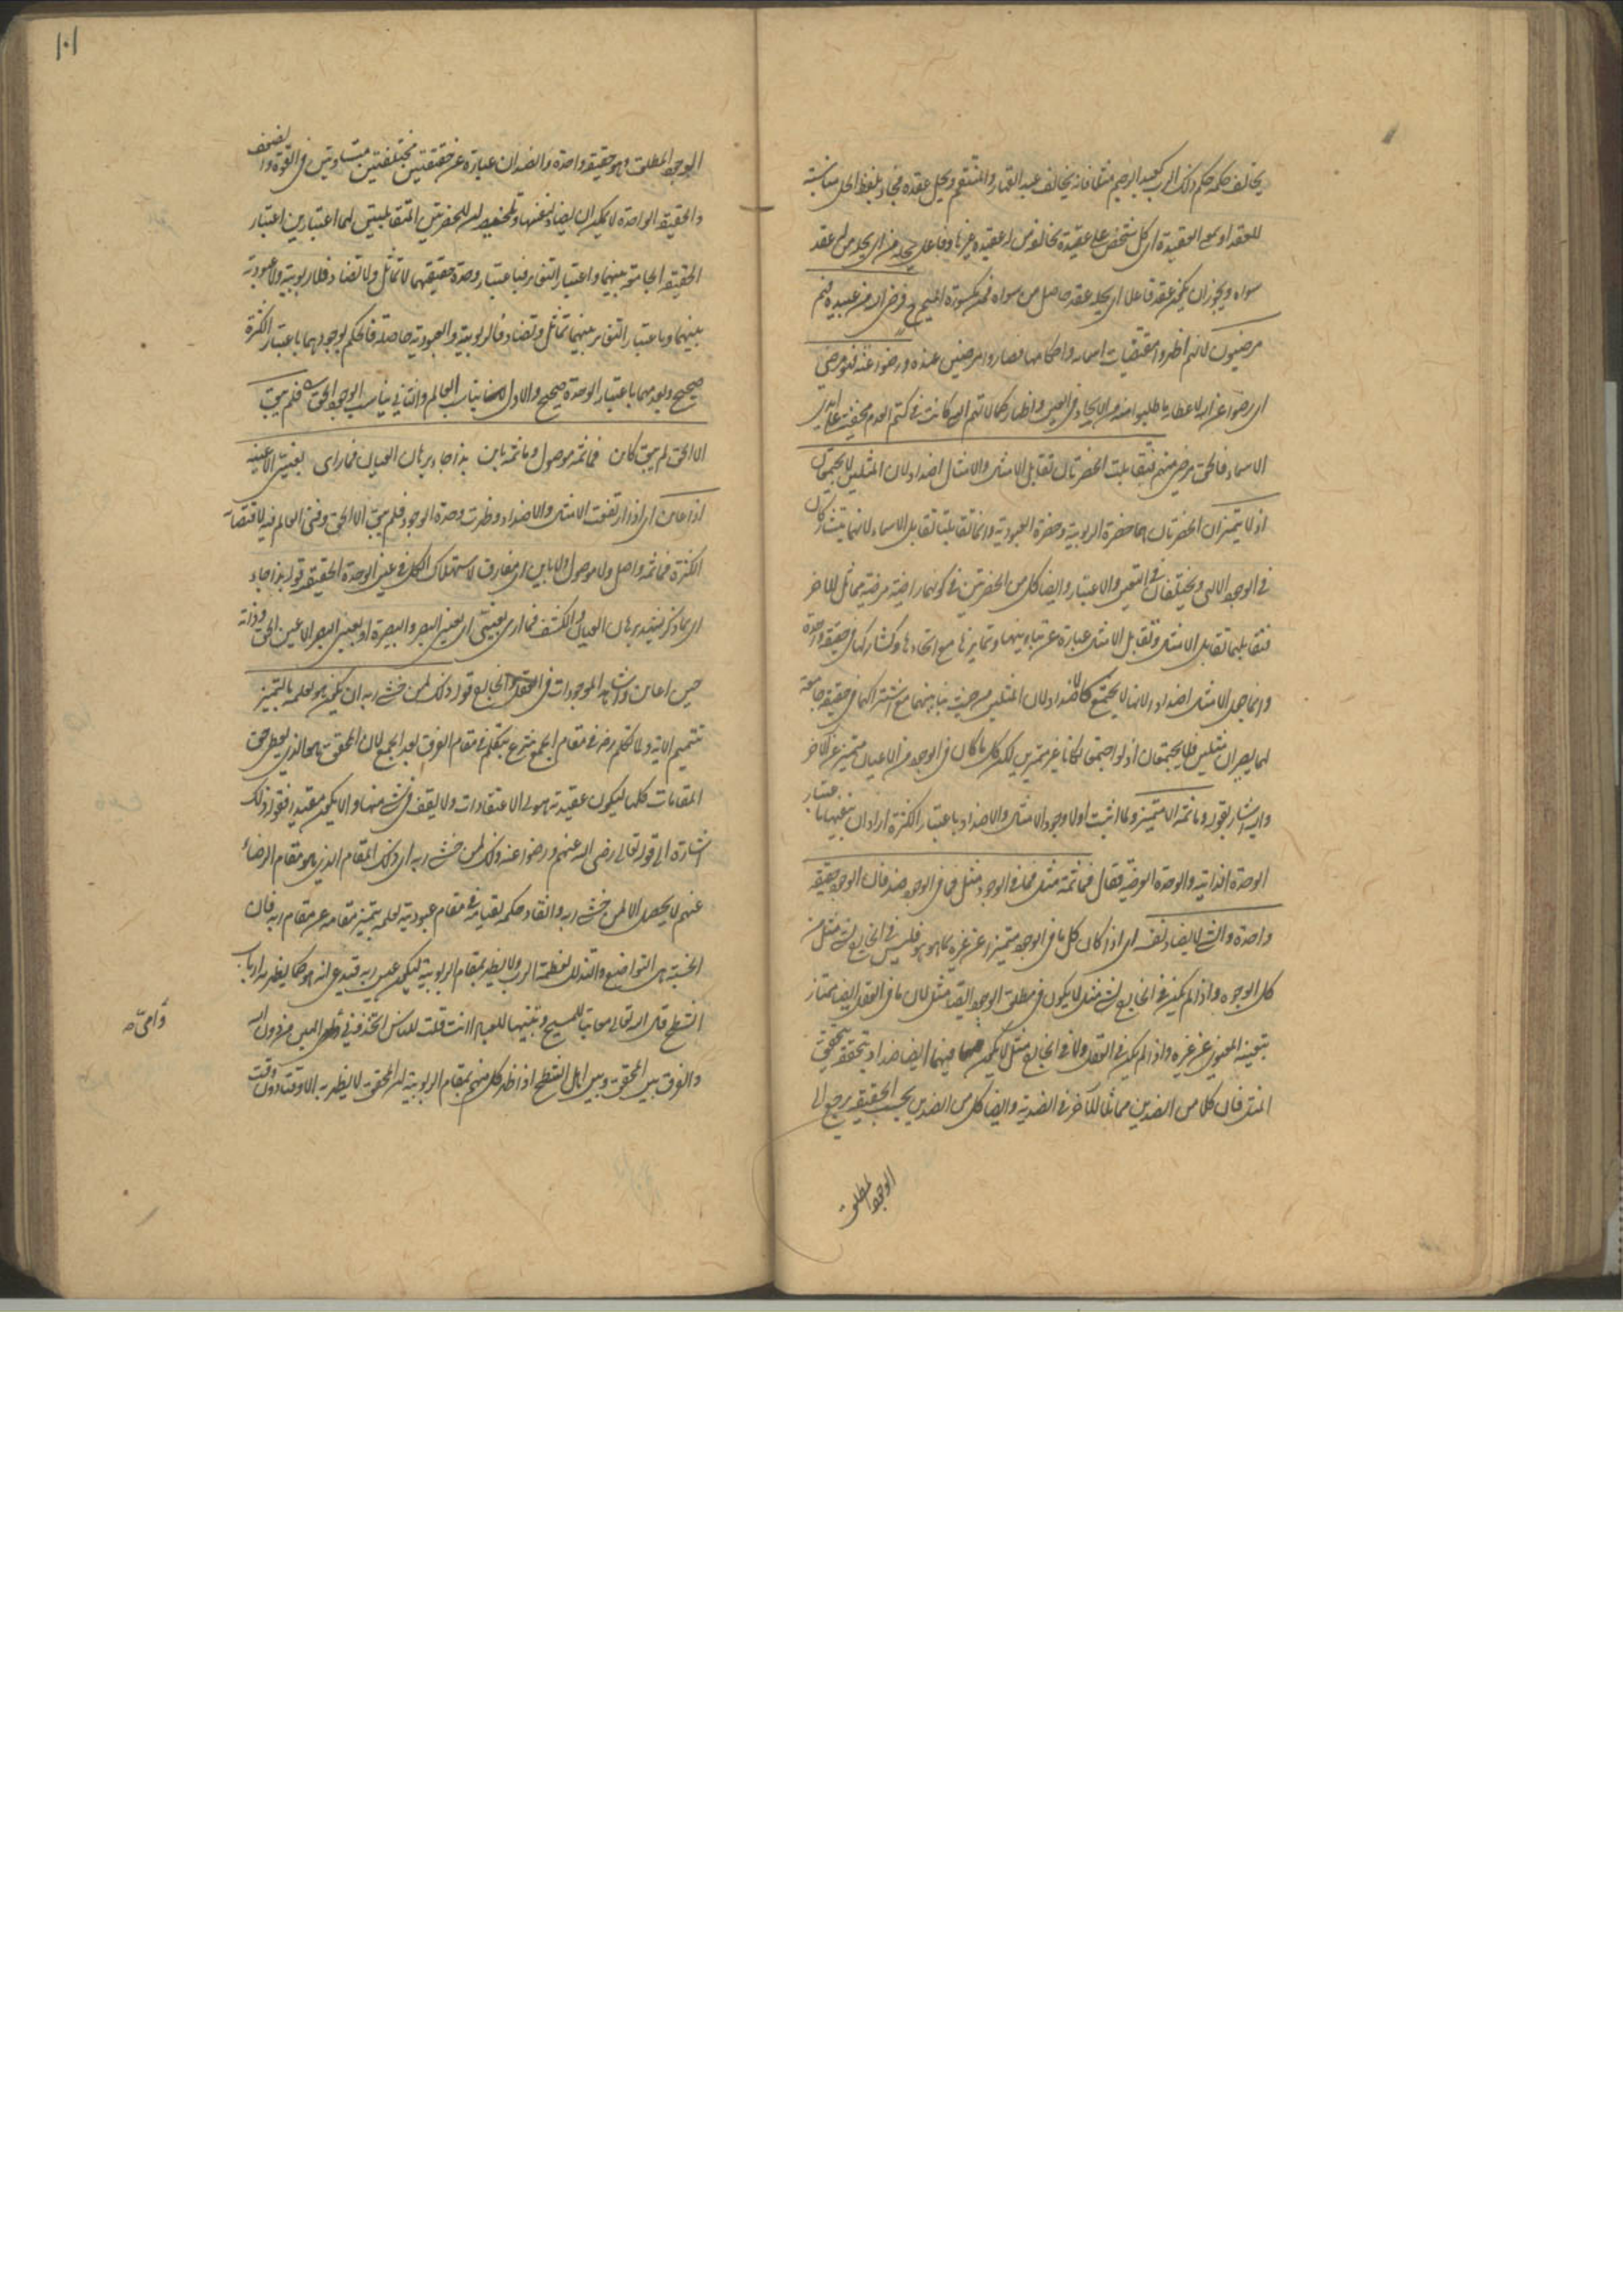 يخالف حكمه حكم ذلك الرب كعبد الرحيم مثلا فانه يخالف عبد القهار والمنتقم ويحل عقده مجاز بلفظ الحل مناسبة
للعقد او بمعنى العقيدة اى كل شخص على عقيدة يخالفه من له عقيدة غيرها وفاعل يحله من اى يحله من له عقد
سواه ويجوز ان يكون عقد فاعلا اى يحله عقد حاصل من سواه فمن مكسورة الميم فرضى الله عن عبيده فهم
مرضيون لانهم اظهروا مقتضيات اسمائه واحكامها فصاروا مرضيين عنده ورضوا عنه فهو مرضى
اى رضوا عن الله لاعطائه ما طلبوا منه من الايجاد فى العين واظهار كمالاتهم التى كانت فى كتم العدم مخفية
الاسماء فالحق مرضى منهم فتقابلت الحضرتان تقابل الامثال والامثال اضداد لان المثلين لا يجتمعان
اذ لا يتميزان الحضرتان هما حضرة الربوبية وحضرة العبودية وانما تقابلتا تقابل الامثال لانهما يتشاركان
فى الوجود الالهى ويختلفان فى التعين والاعتبار وايضا كل من الحضرتين فى كونهما راضية مرضية يماثل للاخر
فتقابلهما تقابل الامثال وتقابل الامثال عبارة عن تباينها وتمايزها مع اتحادها وتشاركها فى حقيقة واحدة
وانما جعل الامثال اضدادا لانها لا يجتمع كالاضداد لان المثلين من حيث تباينهما مع اشتراكهما فى حقيقة جامعة
لهما يصيران مثلين فلا يجتمعان اذ لو اجتمعا لكانا غير متميزين لكن كل ما كان فى الوجود من الاعيان متميز عن الاخر
واليه اشار بقوله وما ثمة الا متميز ولما اثبت اولا وجود الامثال والاضداد باعتبار الكثرة اراد ان ينفيها باعتبار
الوحدة الذاتية والوحدة العرضية فقال فما ثمة مثل فما فى الوجود مثل فما فى الوجود ضد فان الوجود حقيقة
واحدة والشئ لا يضاد نفسه اى اذا كان كل ما فى الوجود متميزا عن غيره بما هو هو فليس فى الخارج لشئ مثل من
كل الوجوه واذا لم يكن فى الخارج لشئ مثل لا يكون فى مطلق الوجود ايضا مثل لان ما فى العقل ايضا يمتاز
بتعينه المعنوى عن غيره واذا لم يكن فى العقل ولا فى الخارج مثل لا يكون فيهما ايضا ضد اذ بتحققه يتحقق
المثل فان كلا من الضدين مماثل للاخر فى الضدية وايضا كل من الضدين بحسب الحقيقة يرجع الى
الوجود المطلق
١٠١
الوجود المطلق وهو حقيقة واحدة والضدان عبارة عن حقيقتين مختلفتين متساويتين فى القوة والضعف
والحقيقة الواحدة لا يمكن ان يضاد نفسها وتلخيصه ان للحضرتين المتقابلتين لهما اعتبارين اعتبار
الحقيقة الجامعة بينهما واعتبار التغاير فباعتبار وحدة حقيقتهما لا تماثل ولا تضاد فلا ربوبية ولا عبودية
بينهما وباعتبار التغاير بينهما تماثل وتضاد فالربوبية والعبودية حاصلة فالحكم بوجودهما باعتبار الكثرة
صحيح وبعدمهما باعتبار الوحدة صحيح والاول يناسب العالم والثانى يناسب الوجود الحق فلم يبق
الا الحق لم يبق كائن فما ثمة موصول وما ثمة بائن بذا جاء برهان العيان فما ارى بعينى الا عينه
اذ اعاين اى اذا ارتفعت الامثال والاضداد وظهرت وحدة الوجود فلم يبق الا الحق وفنى العالم فيه لاقتضائه
الكثرة فما ثمة واصل ولا موصول ولا باين اى مفارق لاستهلاك الكل فى عين الوحدة الحقيقية قوله بذا جاء
اى بما ذكر يشهد برهان العيان والكشف فما ارى بعينى اى بعين البصر والبصيرة او بعين البصر الا عين الحق وذاته
حين اعاين واشاهد الموجودات فى العقل والخارج قوله ذلك لمن خشى ربه ان يكون هو لعلمه بالتميز
تتميم الاية ولما تكلم رضى فى مقام الجمع شرع يتكلم فى مقام الفرق بعد الجمع لان المحقق هو الذى يعطى حق
المقامات كلها ليكون عقيدته هيولى الاعتقادات ولا يقف فى شئ منها والا يكون مقيدا فقوله ذلك
اشارة الى قوله تعالى رضى الله عنهم ورضوا عنه ذلك لمن خشى ربه اى ذلك المقام الذى هو مقام الرضاء
عنهم لا يحصل الا لمن خشى ربه وانقاد حكمه لقيامه فى مقام عبوديته لعلمه بتميز مقامه عن مقام ربه فان
الخشية هى التواضع والتذلل لعظمة الرب ولا يظهر بمقام الربوبية ليكون عين ربه كما يظهر به ارباب
الشطح قال الله تعالى معاتبا للمسيح وتنبيها للعباد اانت قلت للناس اتخذونى وامى الهين من دون الله
والفرق بين المحقق وبين اهل الشطح اذا ظهر كل منهم بمقام الربوبية ان المحقق لا يظهر به الا وقتا دون وقت
وامى صح